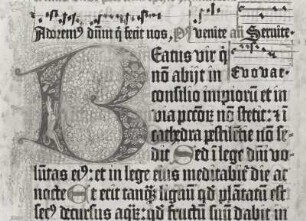 Adorem⁹ dn̄m q̄ fecit nos, P̄s venite an̄ Seruite.
Beatus vir q̄
nō abijt in Evovae.
consilio impiorū et in
via pccōꝝ nō stetit: ⁊ ī
cathedra pestilētie nō se-
dit Sed ī lege dn̄i vo-
lūtas ei⁹: et in lege eius meditabit̄ die ac
nocte Et erit tanq̄ lignū qd̄ plātatū est
sec⁹ decursus aq̄ꝝ: qd̄ fructū suū dabit in